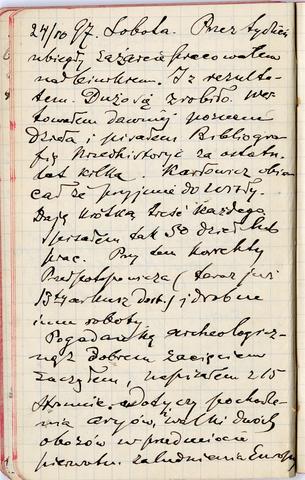 24/10 97. Sobota. Przez tydzień
ubiegły zażarcie pracowałem
nad I z rezulta-
tem. Dużo się zrobiło.
towałem dawniej poznane
Dzieła i pisałem Bibliogra-
fię Przedhistoryi za ostatn.
lat kilka. Karłowicz obie-
cał że przyjmie do Wisły.
Daję krótką treść każdego.
Spisałem tak 50 dzieł lub
prac. Przy tem korekty
Przedpotopowicza (teraz już
13ty arkusz dost.) i drobne
inne roboty.
Pogadankę archeologicz-
ną z dobrem zacięciem
zacząłem, napisałem z 15
stronic. dotyczy pochodze-
nia aryów, i walki dwóch
obozów w przedmiocie
pierwotn. zaludnienia Europy